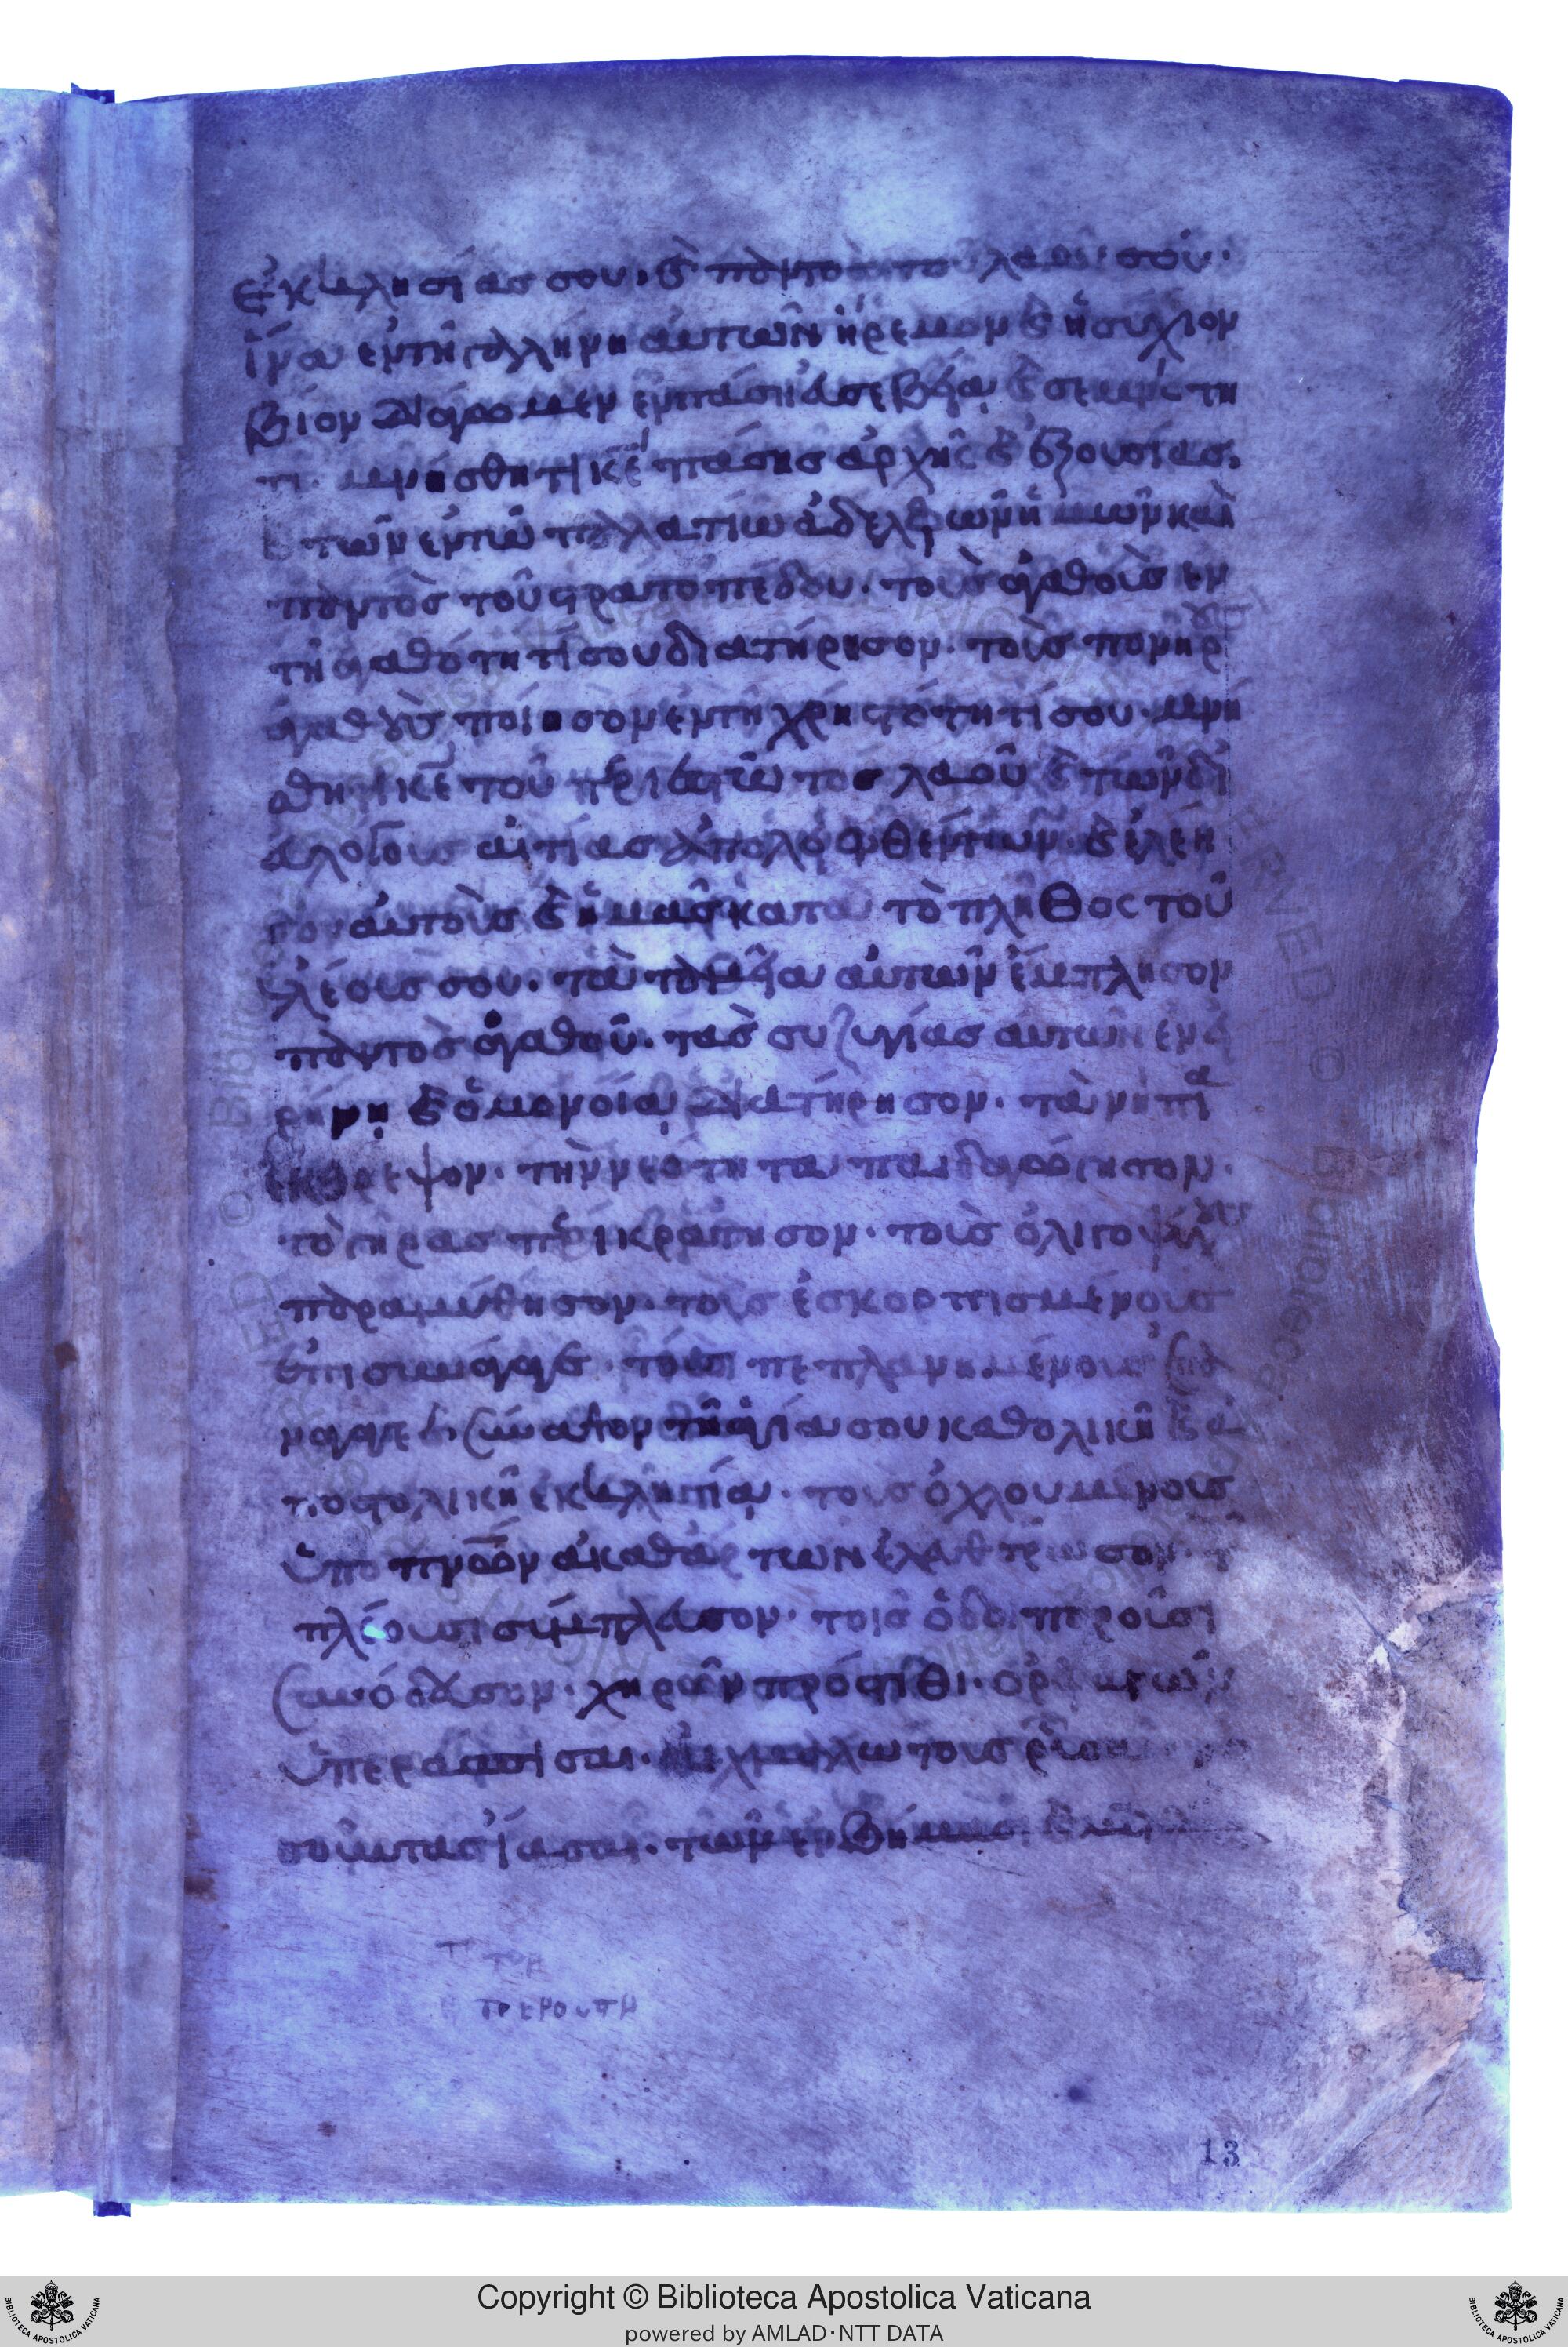 ἐκκλησίας σου· καὶ παντὸς τοῦ λαοῦ σου·
ἵνα ἐν τῆ γαλήνη αὐτῶν ἤρεμον καὶ ἡσύχιον
βίον διάγωμεν ἐν πάση εὐσεβεία καὶ σεμνότη
τι· μνήσθητι κε πάσης ἀρχῆς καὶ ἐξουσίας·
καὶ τῶν ἐν τῶ παλατίω ἀδελφῶν ἡμῶν καὶ
παντὸς τοῦ στρατοπέδου· τοὺς ἀγαθοὺς ἐν
τῆ ἀγαθότητί σου διατήρησον· τοὺς πονηρ
ἀγαθοὺς ποίησον ἐν τῆ χρηστότητί σου· μνή
σθητι κε τοῦ περιεστῶτος λαοῦ καὶ τῶν δι
εὐλόγους αἰτίας ἀπολειφθέντων· καὶ ἐλέη
σον αὐτοὺς καὶ ἡμᾶς κατὰ τὸ πλῆθος τοῦ
ἐλέους σου· τὰ ταμεῖα αὐτῶν ἔμπλησον
παντὸς ἀγαθοῦ· τὰς συζυγίας αὐτῶν ἐν εἰ
ρήνη καὶ ὁμονοία διατήρησον· τὰ νήπια
ἔκθρεψον· τὴν νεότητα παιδαγώγησον·
τὸ γῆρας περικράτησον· τοὺς ὀλιγοψύχους
παραμύθησον· τοὺς ἐσκορπισμένους
ἐπισυνάγαγε· τοὺς πεπλανημένους ἐπα
νάγαγε καὶ σύναψον τῆ ἁγία σου καθολικῆ καὶ ἀ
ποστολικῆ ἐκκλησία· τοὺς ὀχλουμένους
ὑπὸ πνάτων ἀκαθάρτων ἐλευθέρωσον· τ
πλέουσι σύμπλευσον· τοῖς ὁδοιποροῦσι
συνόδευσον· χηρῶν πρόστηθι· ὀρφανῶν
ὑπεράσπισαι· αἰχμαλώτους ῥῦσαι·
σοῦντας ἴασαι· τῶν ἐν βήμασι καὶ
13
Copyright © Biblioteca Apostolica Vaticana
powered by AMLAD·NTT DATA